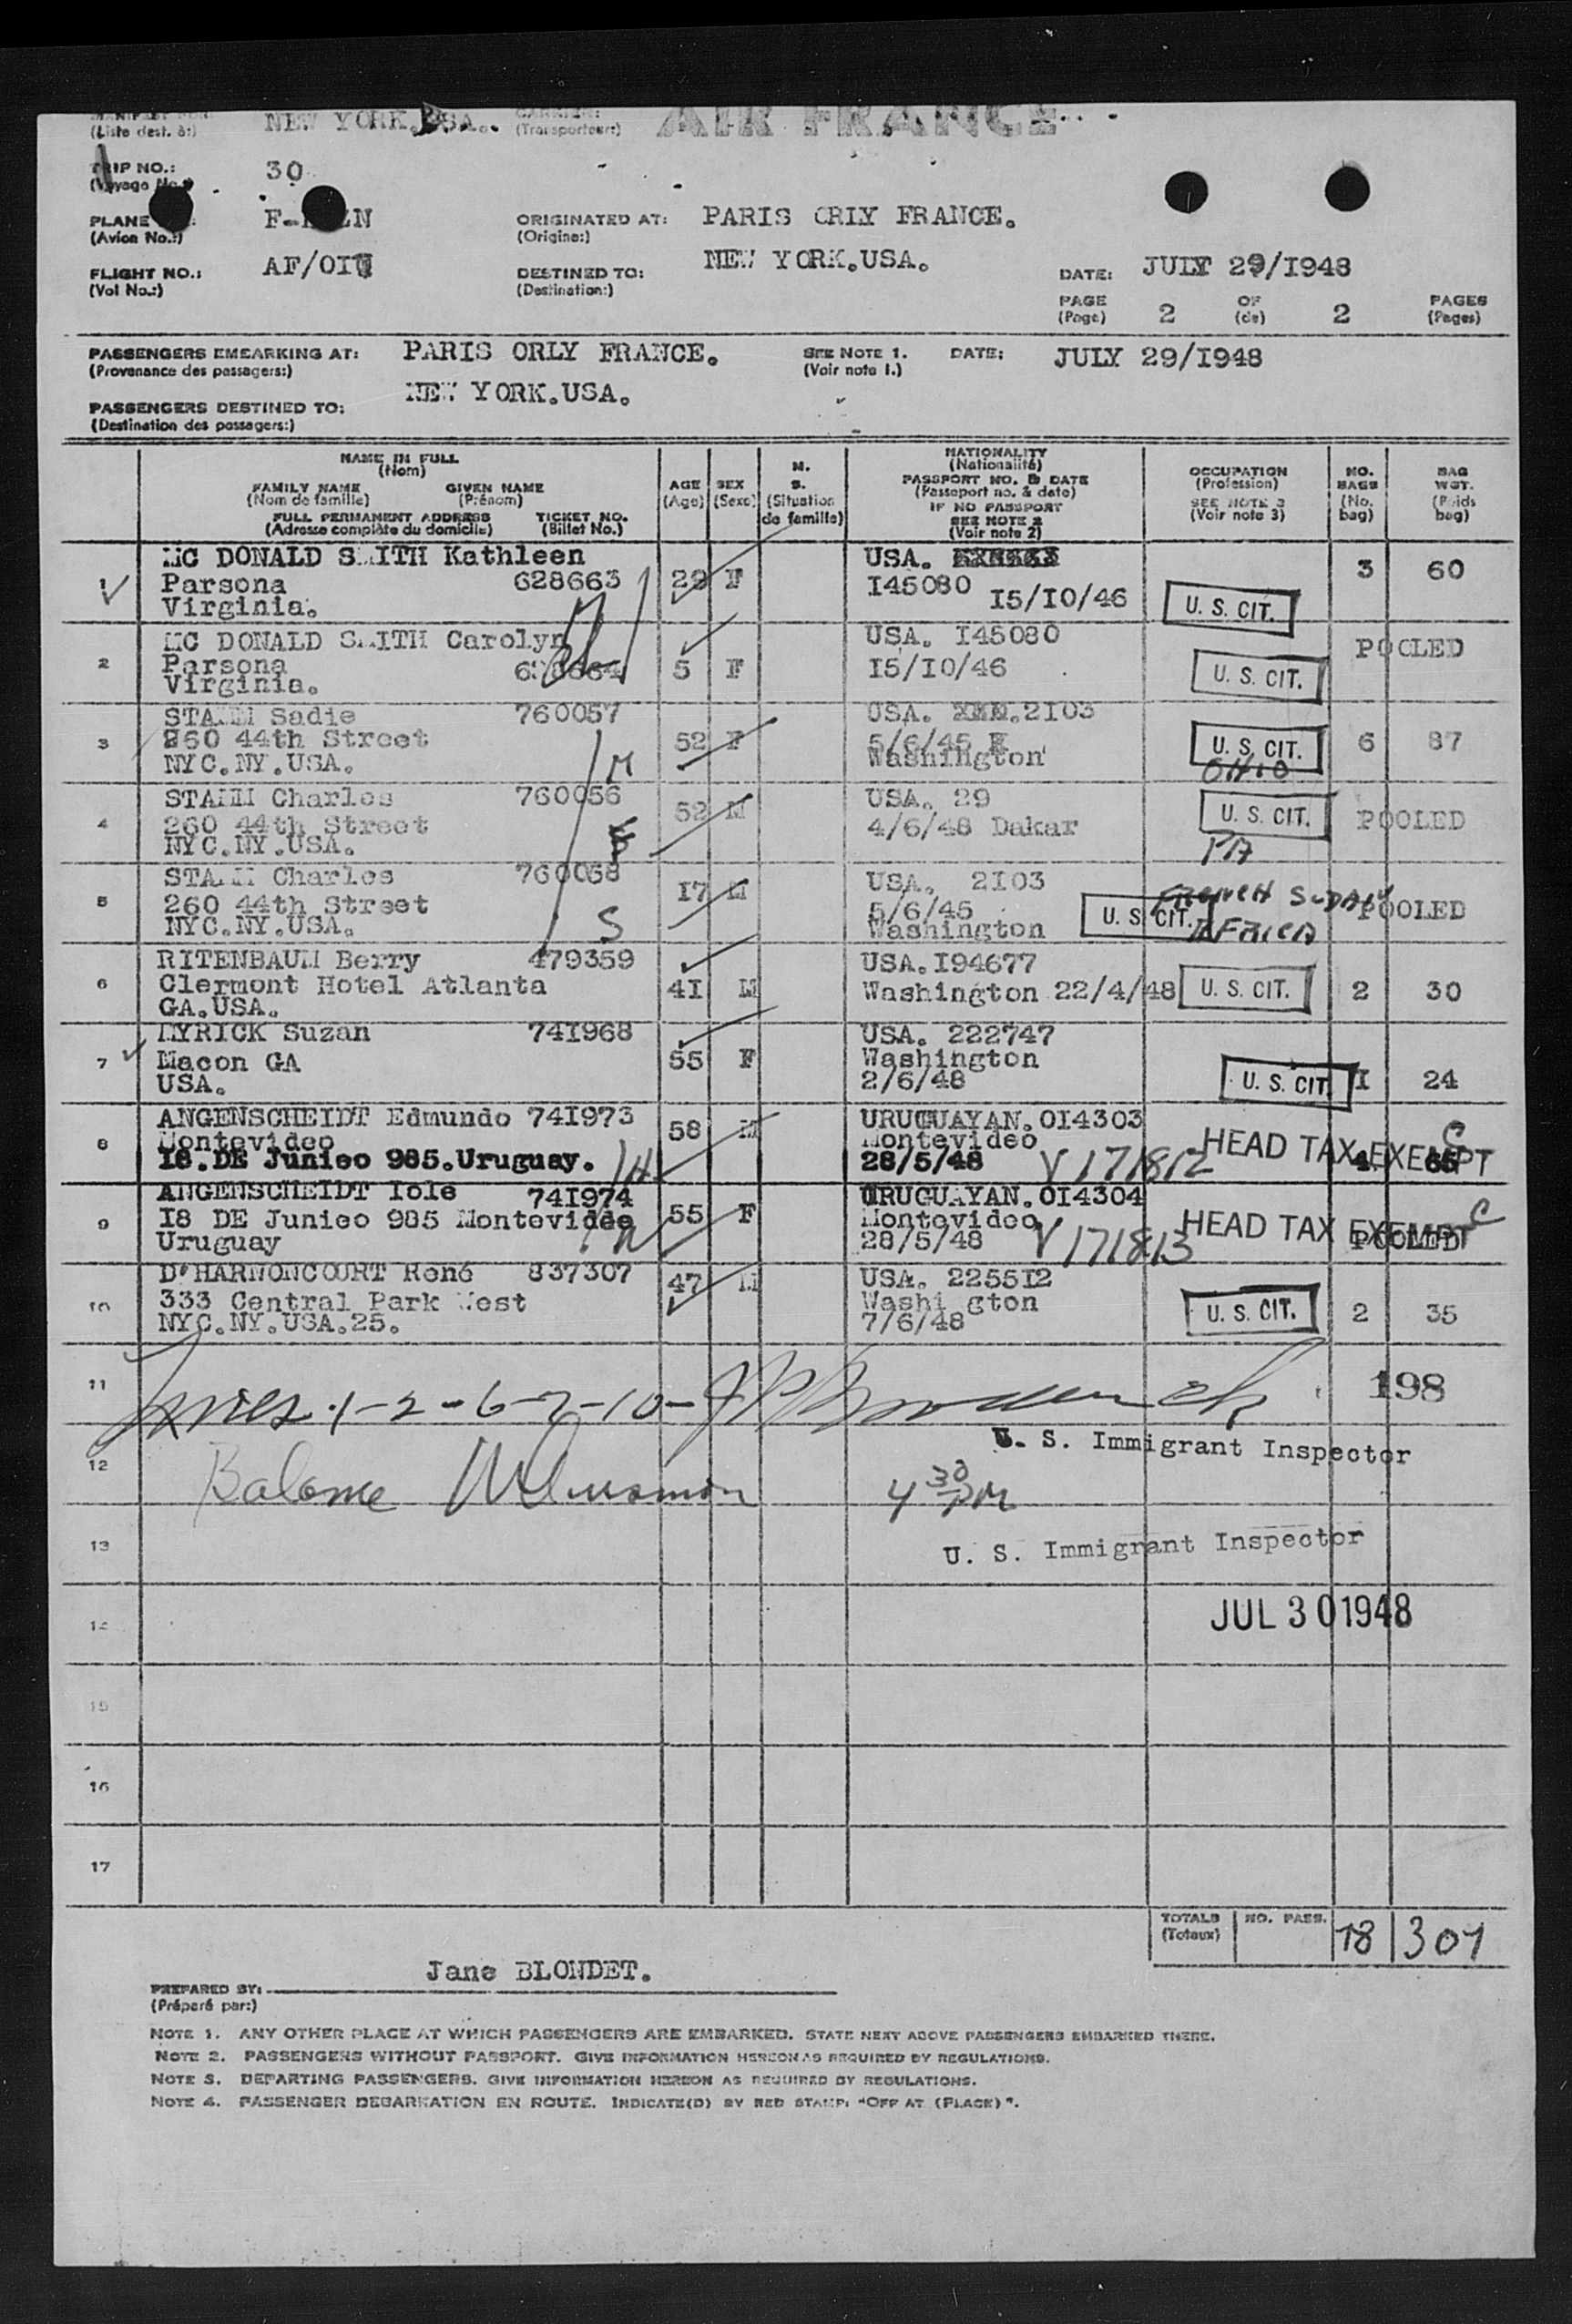 (Liste dest. à:) NEW YORK USA. CARRIER: (Transporteur:) AIR FRANCE
TRIP NO.: 30
(Voyage No.)
PLANE ORIGINATED AT: PARIS ORLY FRANCE.
(Avion No.:) (Origine:)
FLIGHT NO.: DESTINED TO: NEW YORK.USA. DATE: JULY 29/I948
(Vol No.:) (Destination:)
PAGE 2 OF 2 PAGES
(Page) (de) (Pages)
PASSENGERS EMBARKING AT: PARIS ORLY FRANCE. SEE NOTE 1. DATE: JULY 29/I948
(Provenance des passagers:) (Voir note 1.)
NEW YORK.USA.
PASSENGERS DESTINED TO:
(Destination des passagers:)
NAME IN FULL
(Nom)
FAMILY NAME GIVEN NAME
(Nom de famille) (Prénom)
FULL PERMANENT ADDRESS TICKET NO.
(Adresse complète du domicile) (Billet No.)
AGE
(Age)
SEX
(Sexe)
M.
S.
(Situation
de famille)
NATIONALITY
(Nationalité)
PASSPORT NO. & DATE
(Passeport no. & date)
IF NO PASSPORT
SEE NOTE 2
(Voir note 2)
OCCUPATION
(Profession)
SEE NOTE 3
(Voir note 3)
NO.
BAGS
(No.
bag)
BAG
WGT.
(Poids
bag)
MC DONALD SMITH Kathleen USA.
1 Parsona 628663 29 F I45080 I5/I0/46 3 60
Virginia. U. S. CIT.
MC DONALD SMITH Carolyn USA. I45080 POOLED
2 Parsona 5 F I5/I0/46 U. S. CIT.
Virginia.
STAMM Sadie 760057 USA. 2I03
3 260 44th Street 52 F 5/6/45 U. S. CIT. 6 87
NYC.NY.USA. M Washington OHIO
STAMM Charles 760056 USA. 29 U. S. CIT.
4 260 44th Street 52 M 4/6/48 Dakar POOLED
NYC.NY.USA. F PA
STAMM Charles 760058 I7 M USA. 2I03 FRENCH SUDAN
5 260 44th Street 5/6/45 U. S. CIT. POOLED
NYC.NY.USA. S Washington AFRICA
RITENBAUM Berry 479359 USA.I94677
6 Clermont Hotel Atlanta 4I M Washington 22/4/48 U. S. CIT. 2 30
GA.USA.
MYRICK Suzan 74I968 USA. 222747
7 Macon GA 55 F Washington
USA. 2/6/48 U. S. CIT. I 24
ANGENSCHEIDT Edmundo 74I973 58 M URUGUAYAN.0I4303
8 Montevideo Montevideo HEAD TAX EXEMPT C
I8.DE Junieo 985.Uruguay. H 28/5/48 V 171812 4 65
ANGENSCHEIDT Iole 74I974 URUGUAYAN.0I4304
9 I8 DE Junieo 985 Montevideo 55 F Montevideo HEAD TAX EXEMPT C
Uruguay W 28/5/48 V 171813 POOLED
D'HARNONCOURT René 837307 47 M USA. 2255I2
10 333 Central Park West Washi gton U. S. CIT. 2 35
NYC.NY.USA.25. 7/6/48
11 Lines 1-2-6-7-10- 198
U. S. Immigrant Inspector
12 Balance 4 30 PM
13 U. S. Immigrant Inspector
14 JUL 30 1948
15
16
17
TOTALS NO. PASS. 18 301
(Totaux)
Jane BLONDET.
PREPARED BY:
(Préparé par:)
NOTE 1. ANY OTHER PLACE AT WHICH PASSENGERS ARE EMBARKED. STATE NEXT ABOVE PASSENGERS EMBARKED THERE.
NOTE 2. PASSENGERS WITHOUT PASSPORT. GIVE INFORMATION HEREON AS REQUIRED BY REGULATIONS.
NOTE 3. DEPARTING PASSENGERS. GIVE INFORMATION HEREON AS REQUIRED BY REGULATIONS.
NOTE 4. PASSENGER DEBARKATION EN ROUTE. INDICATE(D) BY RED STAMP: "OFF AT (PLACE)".